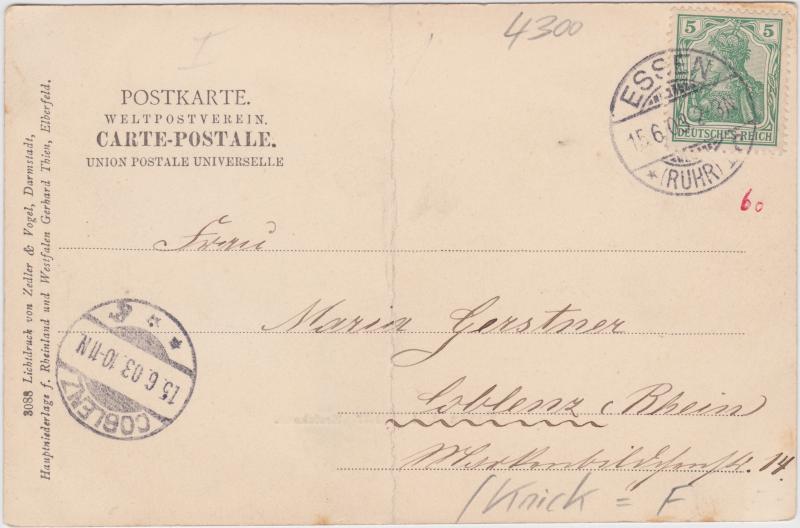 I
4300
5 5
DEUTSCHES REICH
ESSEN
15.6.03 2-3N
* (RUHR) 1
POSTKARTE.
WELTPOSTVEREIN.
CARTE-POSTALE.
UNION POSTALE UNIVERSELLE
60
Frau
Maria Gerstner
Coblenz, Rhein
14.
(Knick = F
COBLENZ
15.6.03.10-11N
* *
3088 Lichtdruck von Zedler & Vogel, Darmstadt,
Hauptniederlage f. Rheinland und Westfalen Gerhard Thien, Elberfeld.